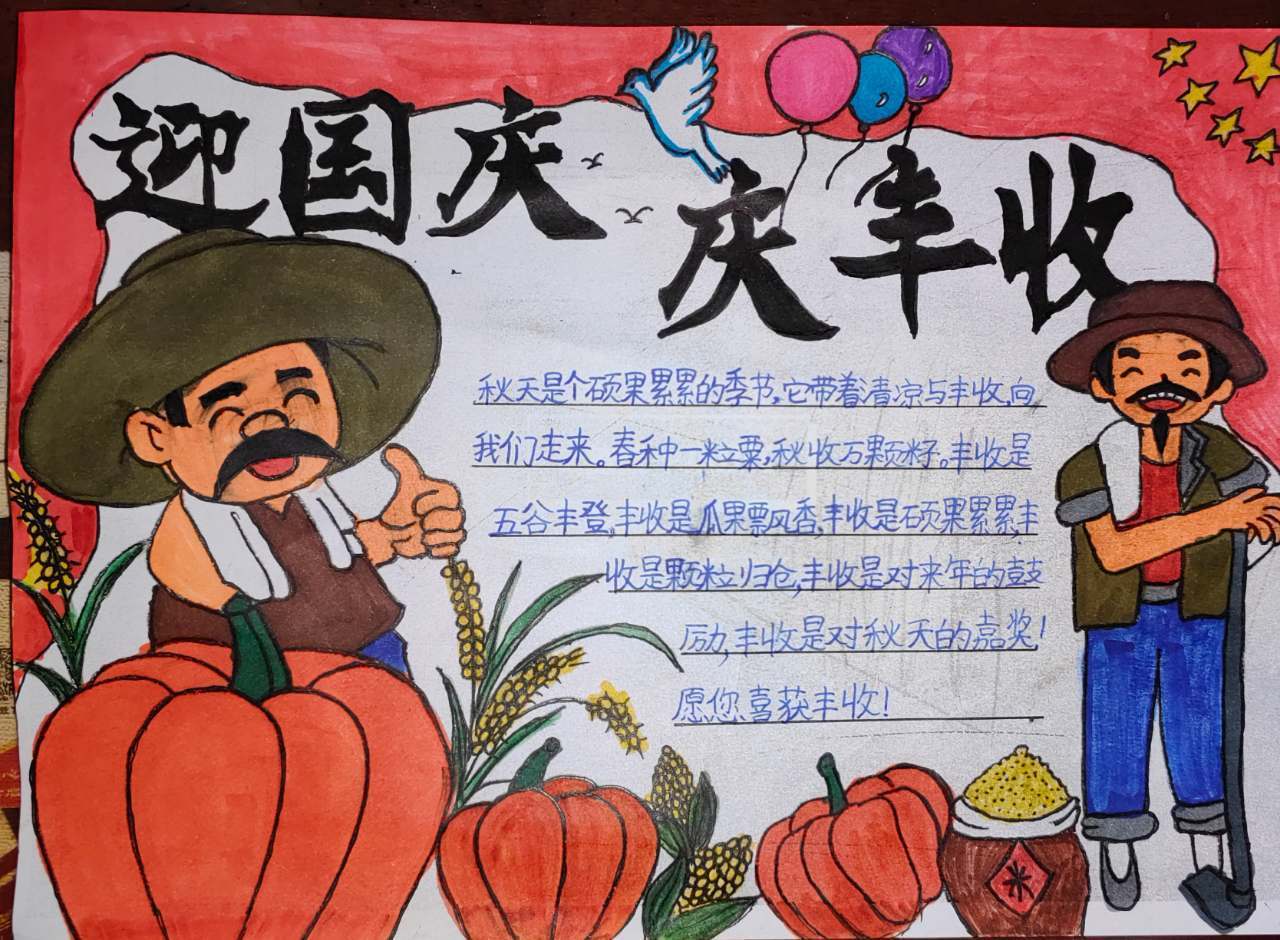 迎国庆
庆丰收
秋天是个硕果累累的季节,它带着清凉与丰收,向
我们走来。春种一粒粟,秋收万颗籽。丰收是
五谷丰登,丰收是瓜果飘香,丰收是硕果累累,丰
收是颗粒归仓,丰收是对来年的鼓
励,丰收是对秋天的嘉奖!
愿您喜获丰收!
米